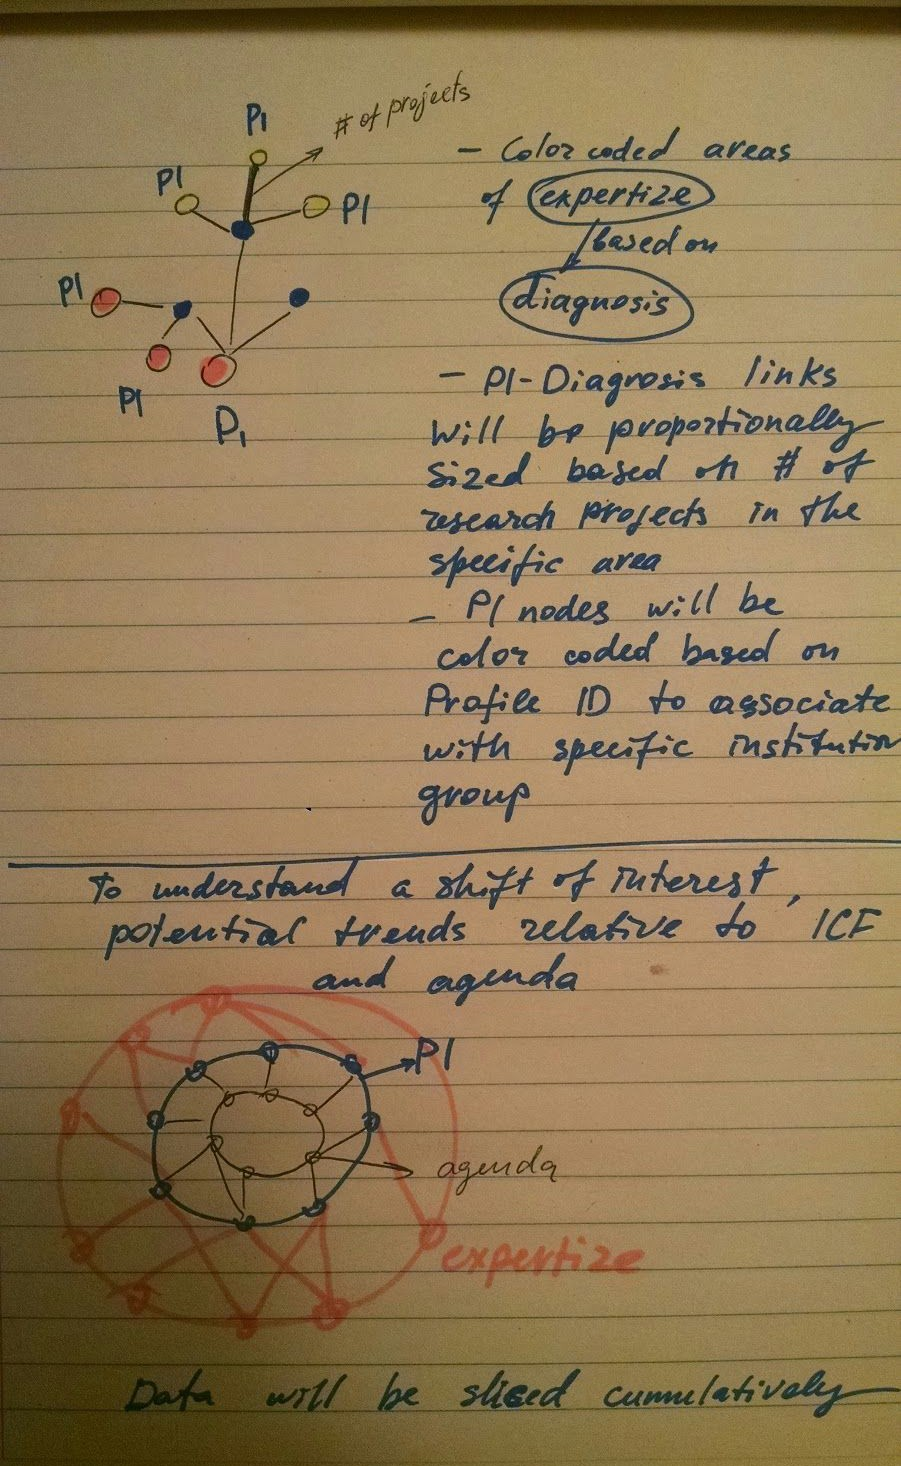 PI
# of projects
PI
PI
PI
PI
D1
- Color coded areas
of expertize
based on
diagnosis
- PI-Diagnosis links
will be proportionally
sized based on # of
research projects in the
specific area
- PI nodes will be
color coded based on
Profile ID to associate
with specific institution
group
To understand a shift of interest,
potential trends relative to ICF
and agenda
PI
agenda
expertize
Data will be sliced cummulatively